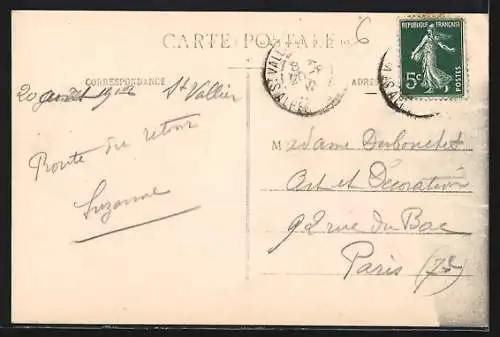 6
CARTE POSTALE
RÉPUBLIQUE FRANÇAISE
5c POSTES
CORRESPONDANCE
ADRES
20 août 1912 St Vallier
Route du retour
Suzanne
Madame Dubouchet
Art et Décoration
92 rue du Bac
Paris (7e)